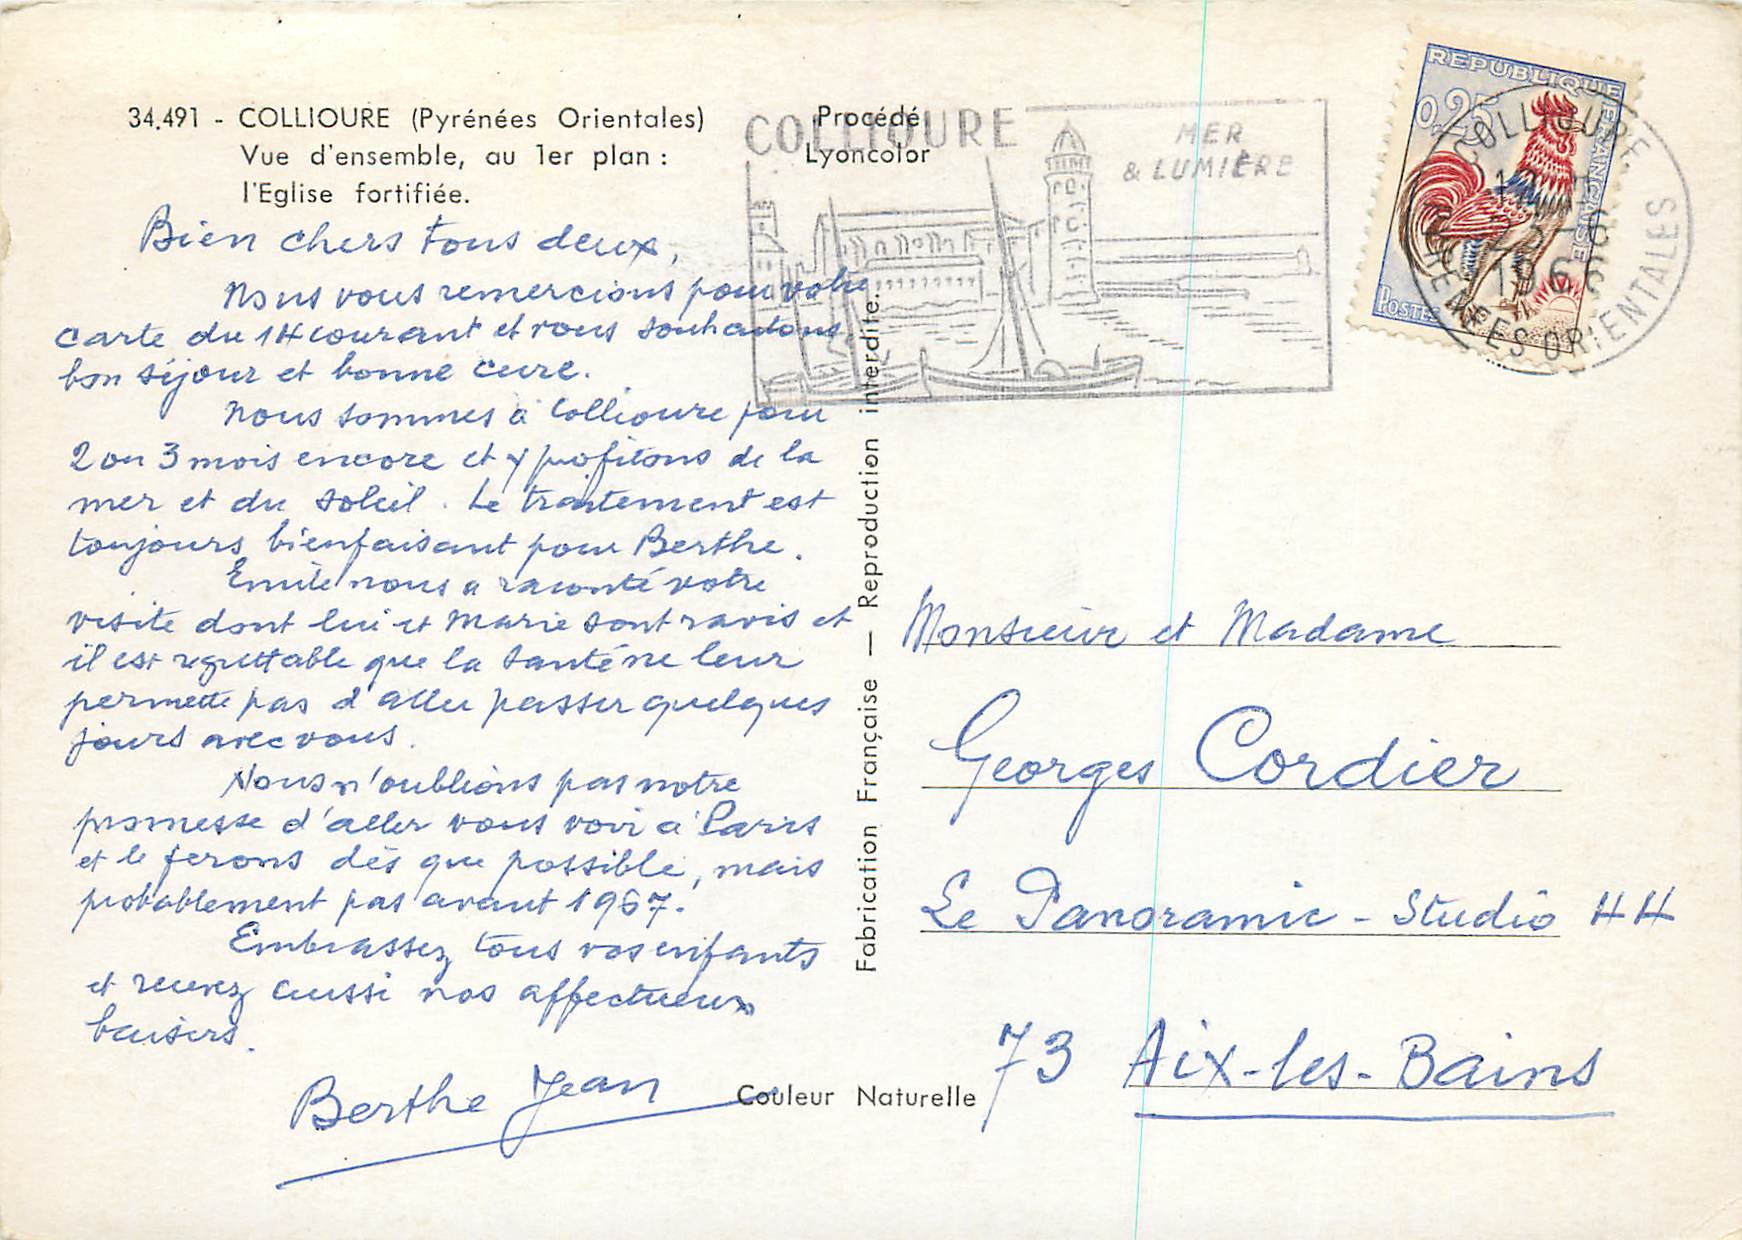 34.491 - COLLIOURE (Pyrénées Orientales)
Vue d'ensemble, au 1er plan :
l'Eglise fortifiée.
Procédé
Lyoncolor
COLLIOURE
MER
& LUMIÈRE
REPUBLIQUE FRANÇAISE
0,25
POSTES
COLLIOURE
1966
PYRENEES ORIENTALES
Bien chers tous deux,
Nous vous remercions pour votre
carte du 14 courant et vous souhaitons
bon séjour et bonne cure.
Nous sommes à Collioure pour
2 ou 3 mois encore et y profitons de la
mer et du soleil. Le traitement est
toujours bienfaisant pour Berthe.
Emile nous a raconté votre
visite dont lui et Marie sont ravis et
il est regrettable que la santé ne leur
permette pas d'aller passer quelques
jours avec vous.
Nous n'oublions pas notre
promesse d'aller vous voir à Paris
et le ferons dès que possible, mais
probablement pas avant 1967.
Embrassez tous vos enfants
et recevez aussi nos affectueux
baisers.
Berthe Jean
Couleur Naturelle
Fabrication Française — Reproduction interdite.
Monsieur et Madame
Georges Cordier
Le Panoramic - Studio 44
73 Aix-les-Bains